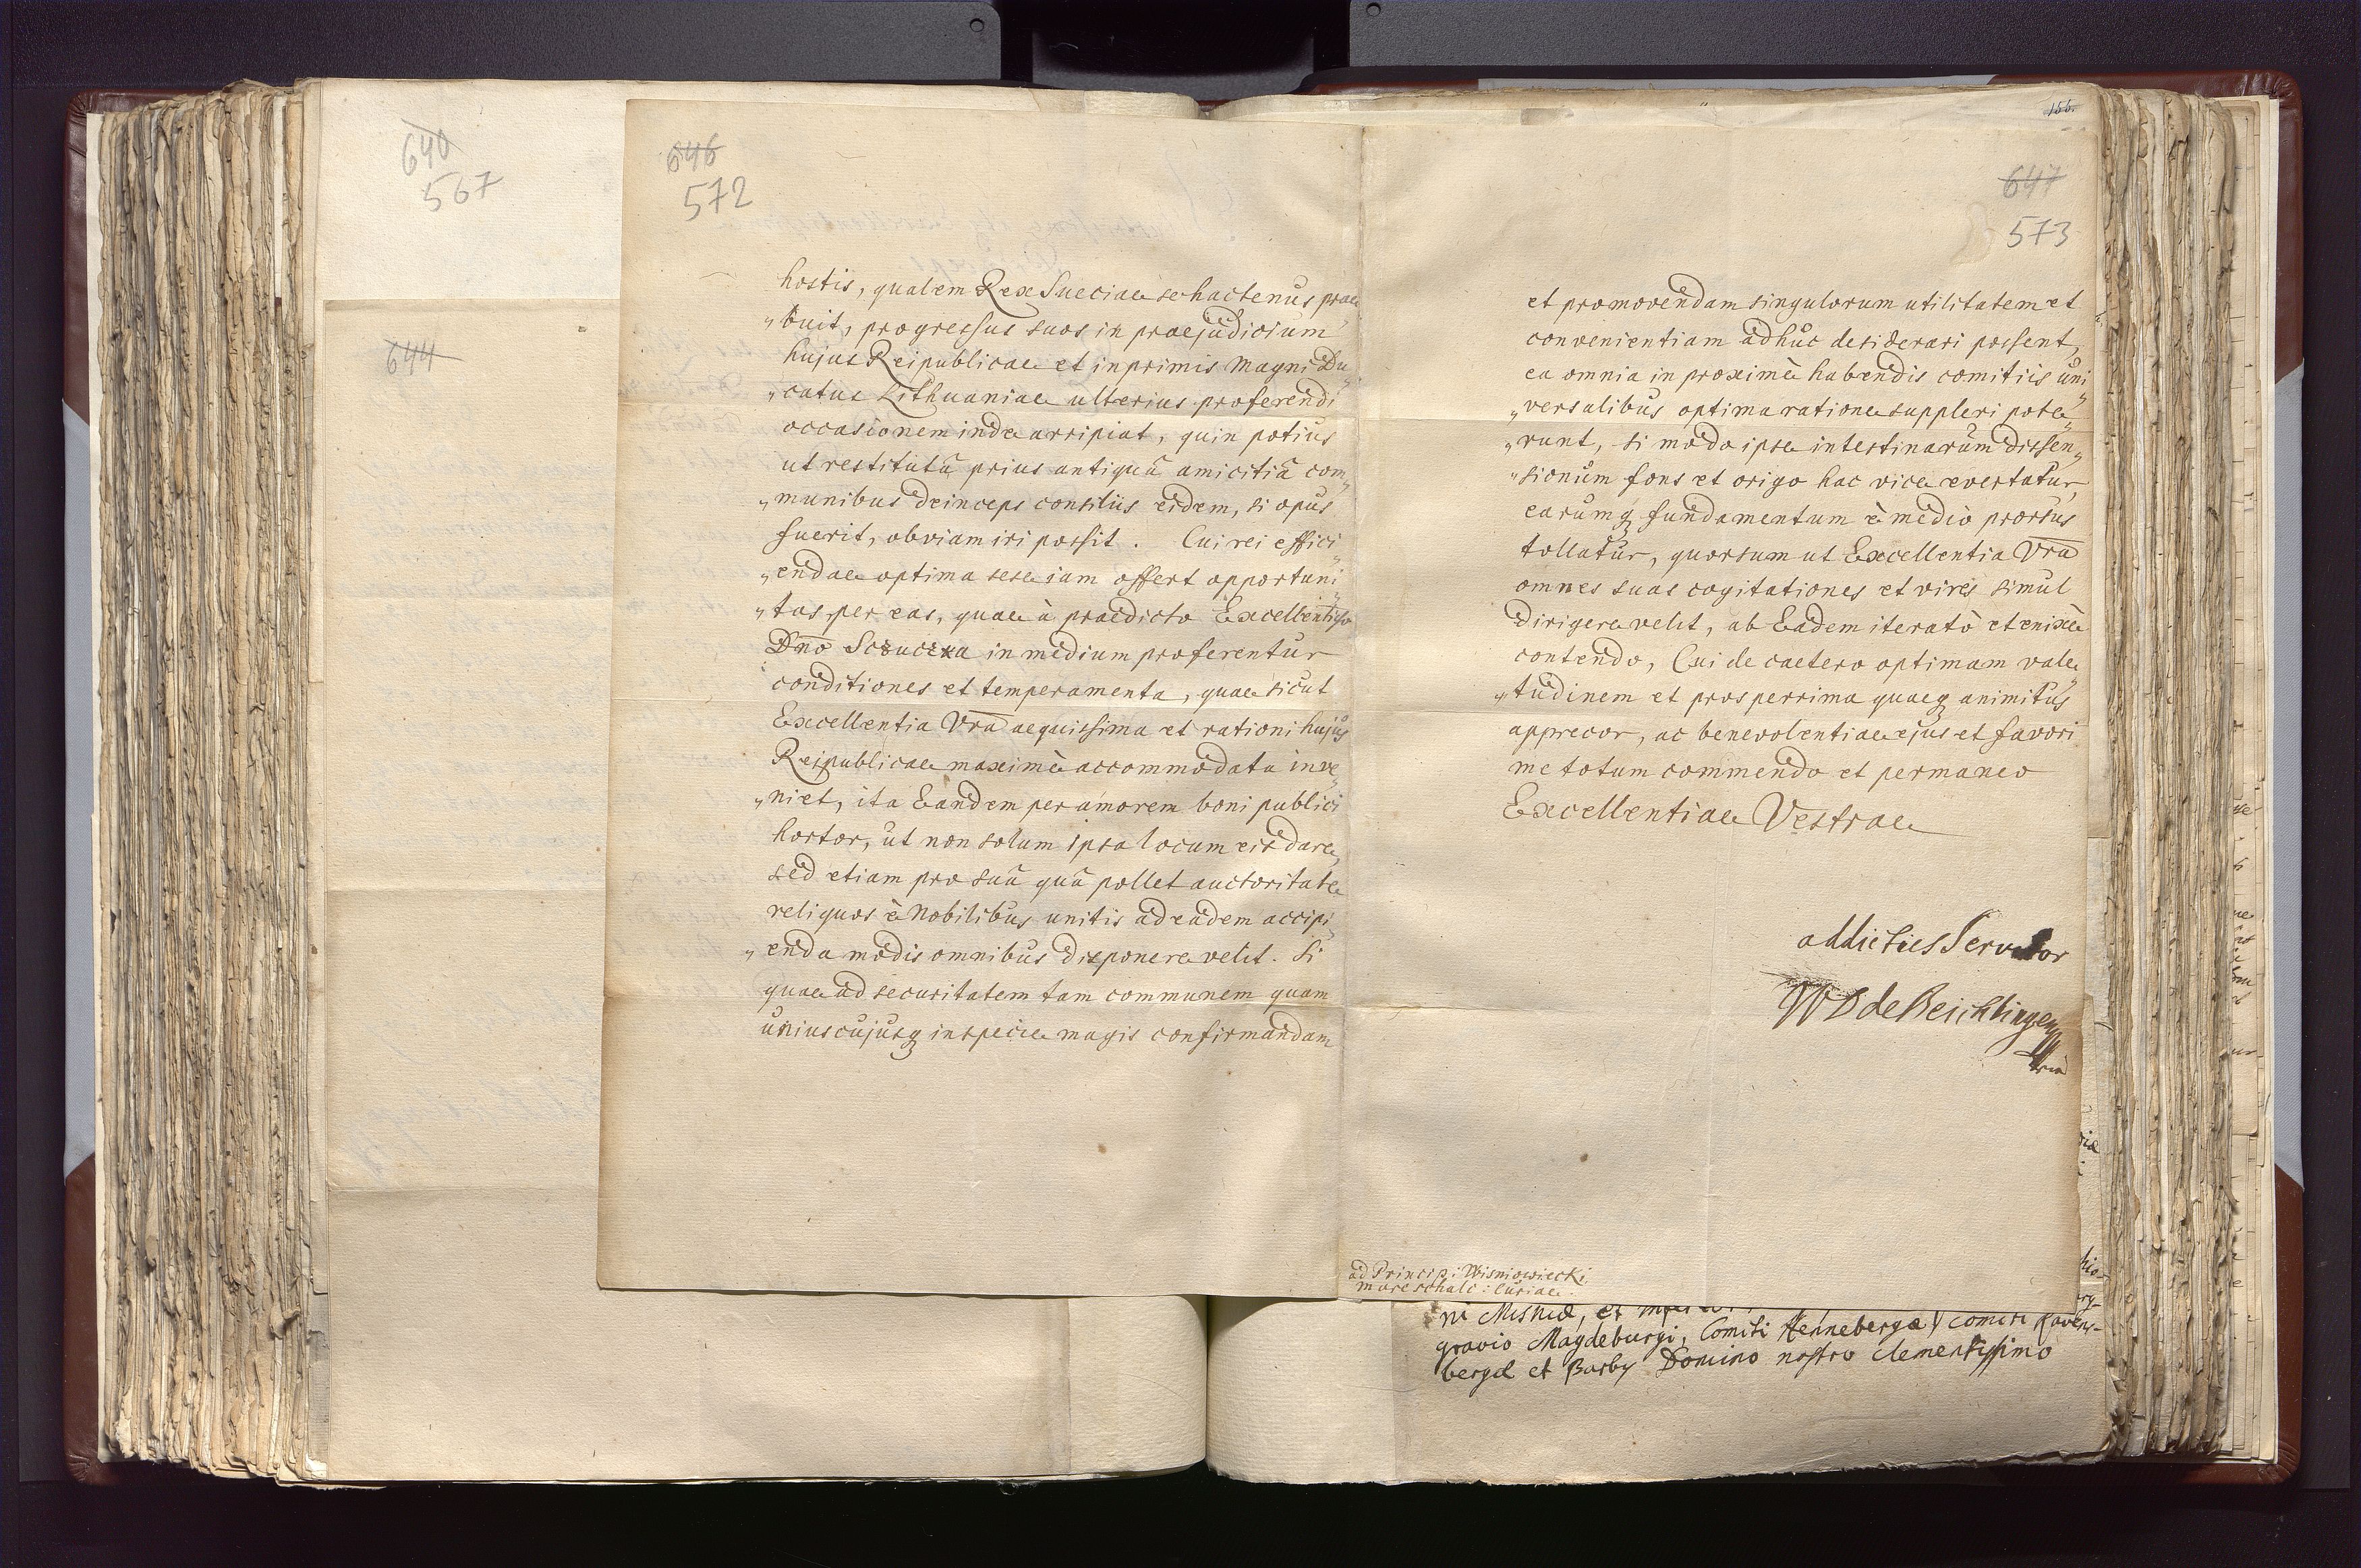 640
567
644
646
572
hostis, qualem Rex Sueciae se hactenus prae„
„buit, progressus suos in praejudicium
hujus Reipublicae et inprimis Magni Du„
„catus Lithuaniae ulterius proferendi
occasionem inde arripiat, quin potius
ut restitutâ prius antiquâ amicitiâ com„
„munibus deinceps consiliis eidem, si opus
fuerit, obviam iri possit. Cui rei effici„
„endae optima sese iam offert opportuni„
„tas per eas, quae à praedicto Excellentisso
Dno Sczuczka in medium proferentur
conditiones et temperamenta, quae sicut
Excellentia Vra aequissima et rationi hujus
Reipublicae maximè accommodata inve„
„niet, ita Eandem per amorem boni publici
hortor, ut non solum ipsa locum eis dare,
sed etiam pro suâ quâ pollet auctoritate
reliquos è Nobilibus unitis ad eadem accipi„
„enda modis omnibus disponere velit. Si
quae ad securitatem tam communem quam
uniuscujusq in specie magis confirmandam
155.
647
573
et promovendam singulorum utilitatem et
convenientiam adhuc desiderari possent,
ea omnia in proximè habendis comitiis uni„
„versalibus optima ratione suppleri pote„
„runt, si modo ipse intestinarum dissen„
„sionum fons et origo hac vice evertatur,
earumq fundamentum è medio prorsus
tollatur, quorsum ut Excellentia Vra
omnes suas cogitationes et vires simul
dirigere velit, ab Eadem iteratò et enixè
contendo, Cui de caetero optimam vale„
„tudinem et prosperrima quaeq animitus
apprecor, ac benevolentiae ejus et favori
me totum commendo et permaneo
Excellentiae Vestrae
addictus Servitor
WD de Beichlingen
mria
ad Princip: Wisniowiecki
mareschalc: Curiae.
ni Misniæ, et
gravio Magdeburgi, Comiti Hennebergæ, Comiti Ravens-
bergæ et Barby Domino nostro clementissimo